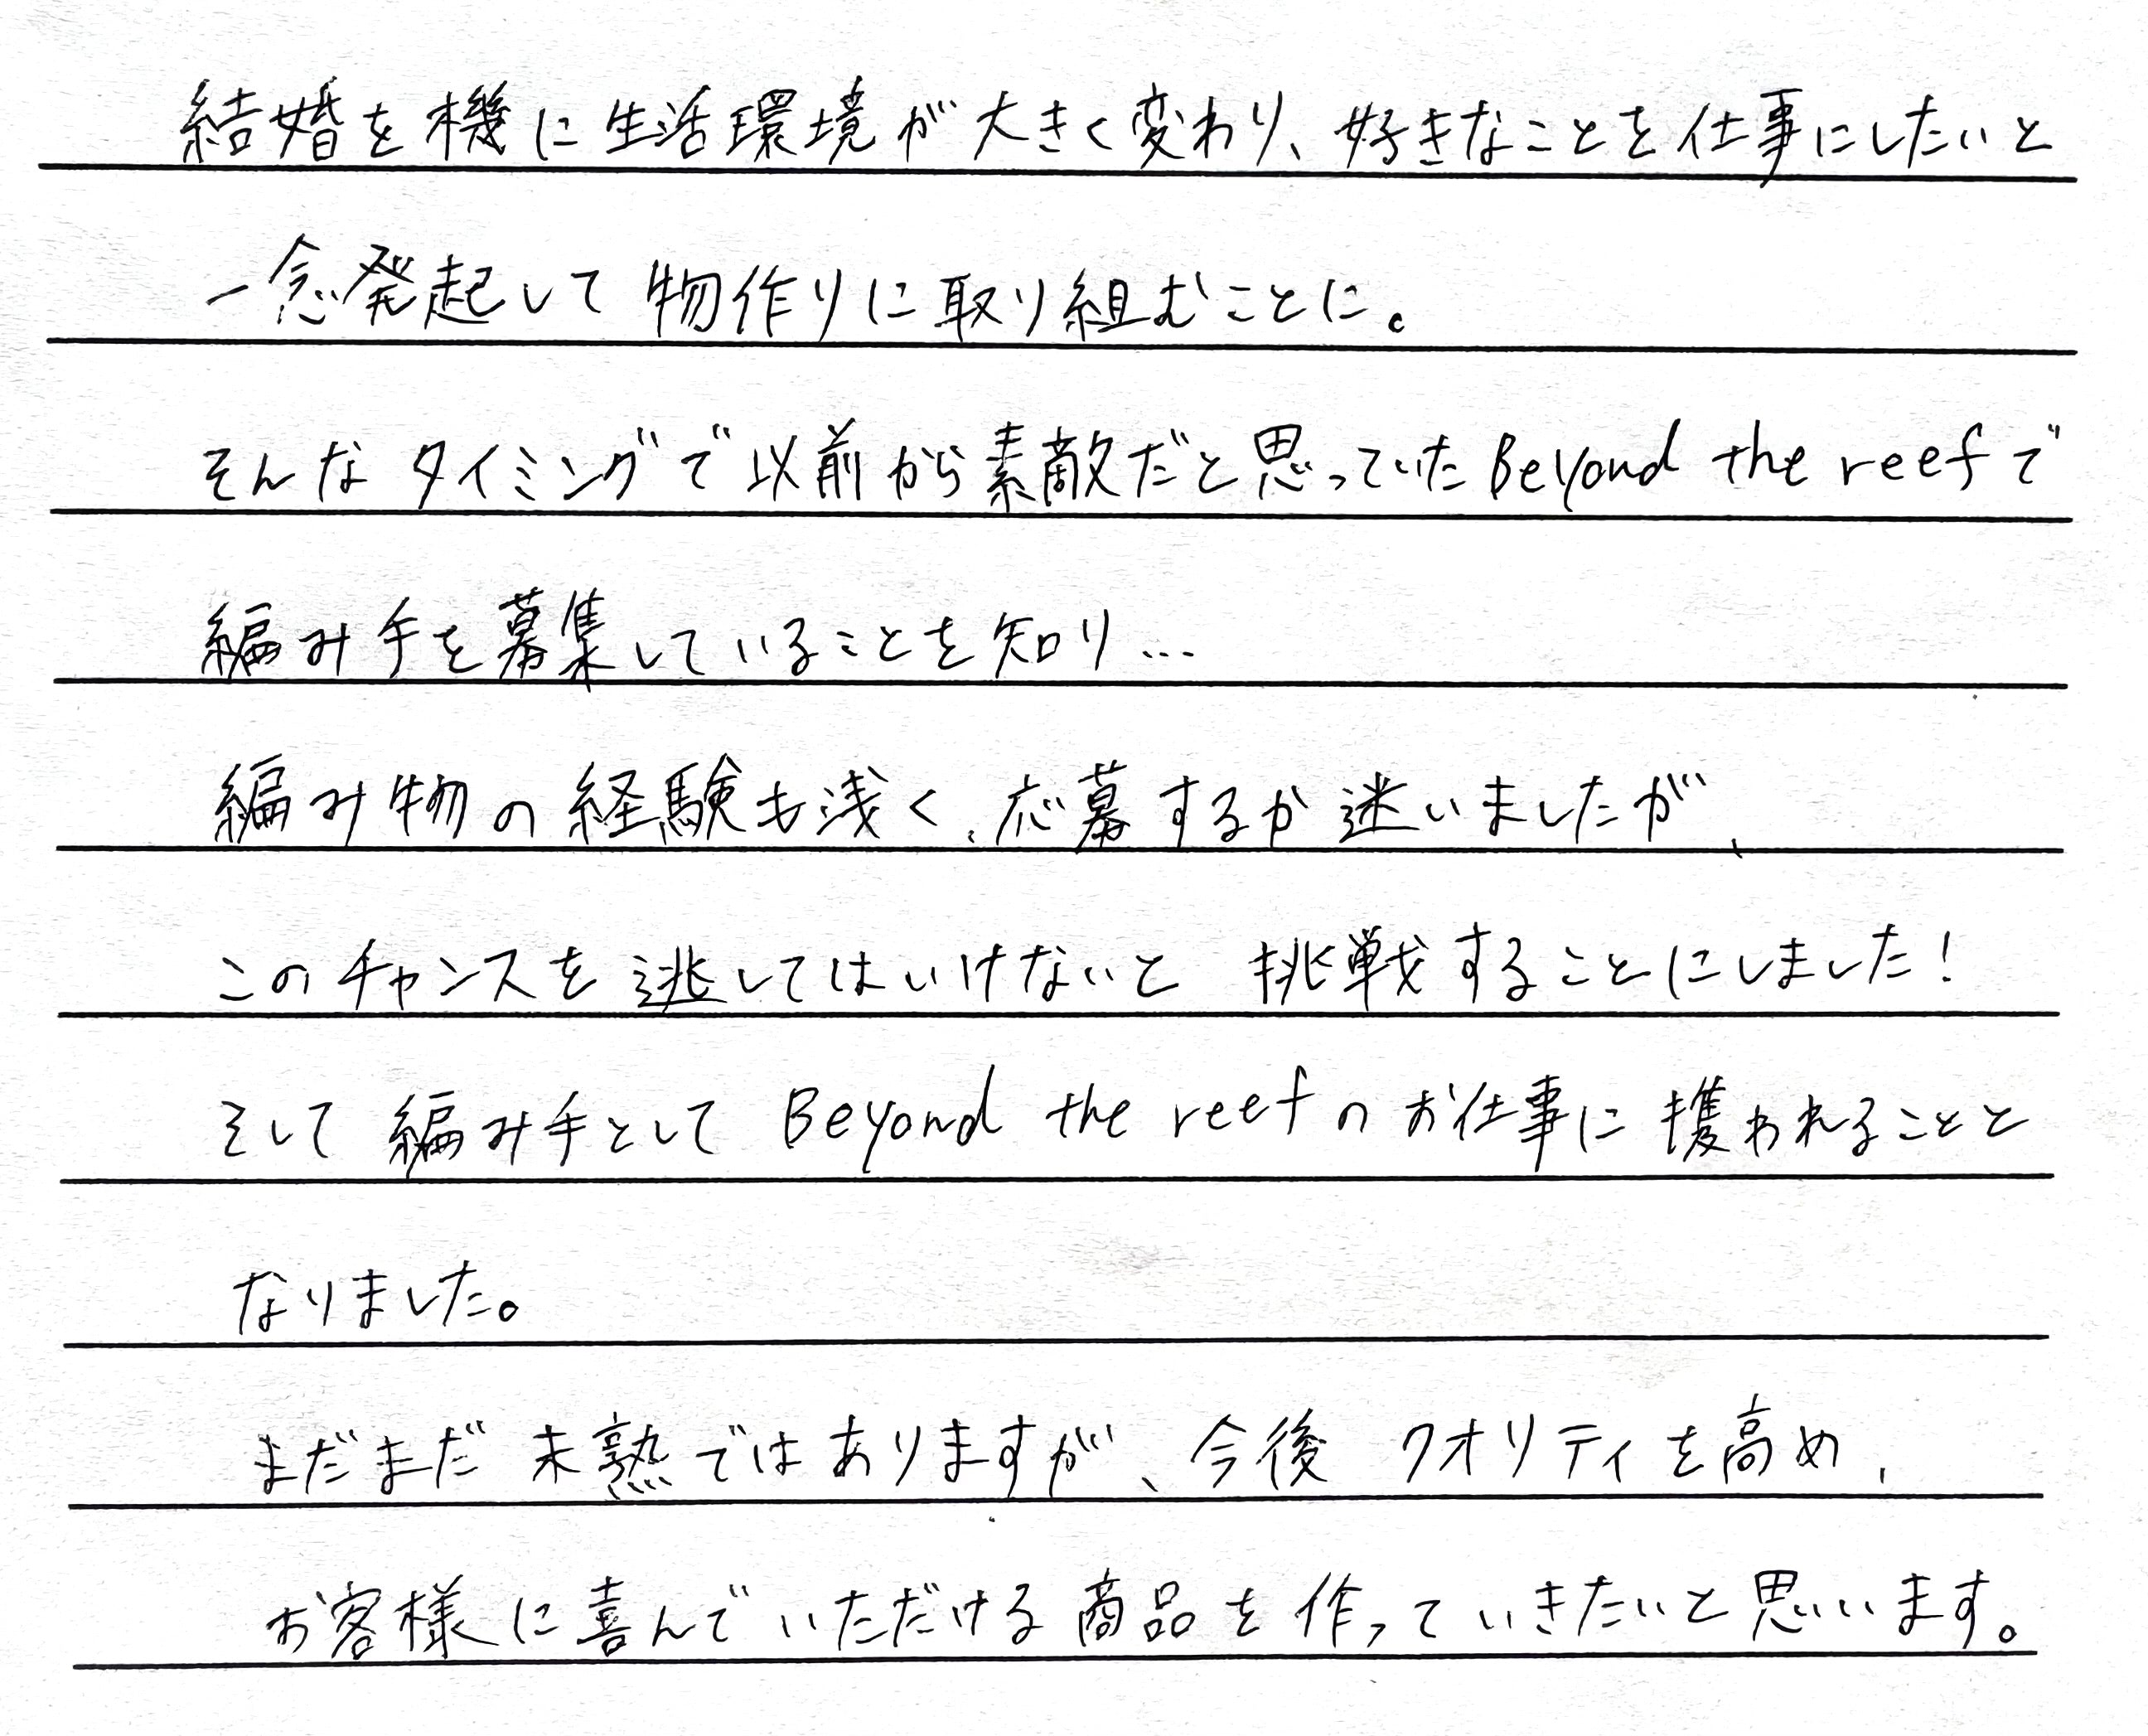 結婚を機に生活環境が大きく変わり、好きなことを仕事にしたいと
一念発起して物作りに取り組むことに。
そんなタイミングで以前から素敵だと思っていたBeyond the reefで
編み手を募集していることを知り…
編み物の経験も浅く、応募するか迷いましたが、
このチャンスを逃してはいけないと挑戦することにしました!
そして編み手として Beyond the reefのお仕事に携われることと
なりました。
まだまだ未熟ではありますが、今後クオリティを高め、
お客様に喜んでいただける商品を作っていきたいと思います。